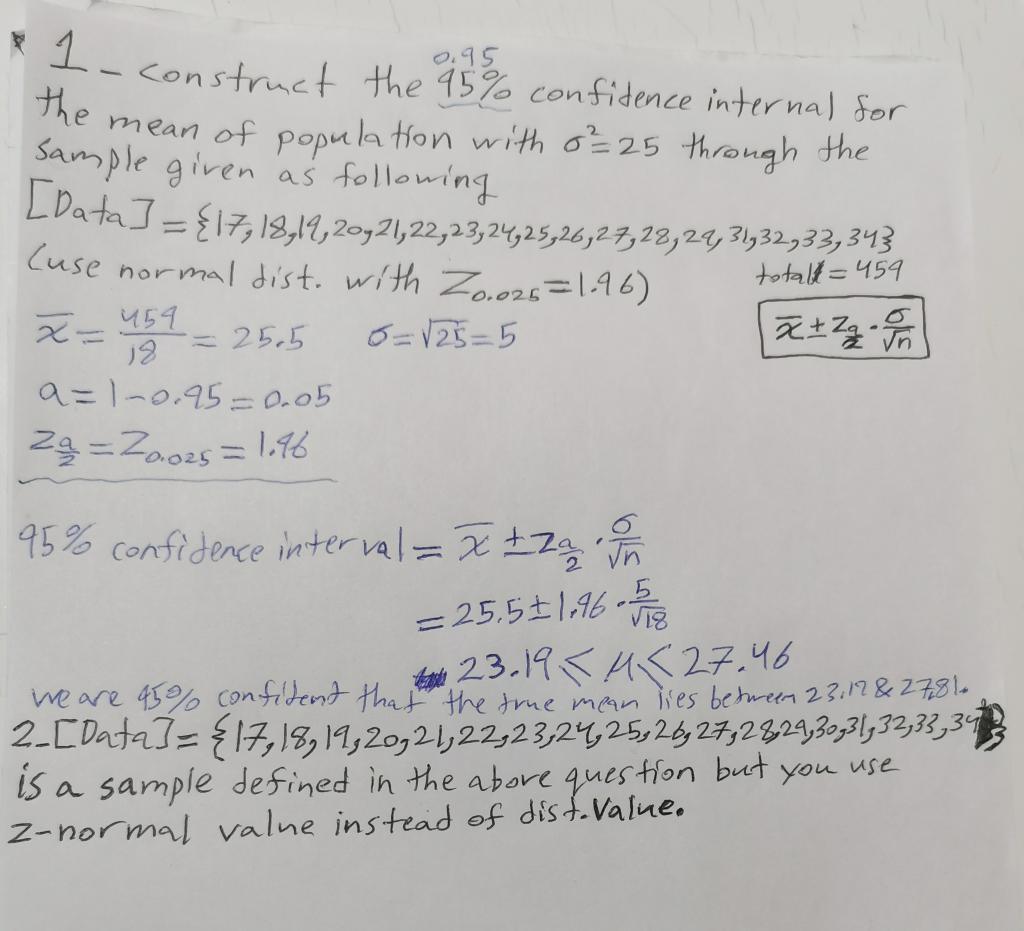 0.95
1-construct the 95% confidence internal for
the mean of population with σ²=25 through the
sample given as following
[Data]={17,18,19,20,21,22,23,24,25,26,27,28,29,31,32,33,34}
(use normal dist. with Z0.025=1.96)
total=459
x̄=459/18=25.5 σ=√25=5
x̄±Za/2·σ/√n
a=1-0.95=0.05
Za/2=Z0.025=1.96
95% confidence interval=x̄±Za/2·σ/√n
=25.5±1.96·5/√18
23.19<μ<27.46
we are 95% confident that the true mean lies between 23.19&27.81.
2-[Data]={17,18,19,20,21,22,23,24,25,26,27,28,29,30,31,32,33,34}
is a sample defined in the above question but you use
z-normal value instead of dist.Value.